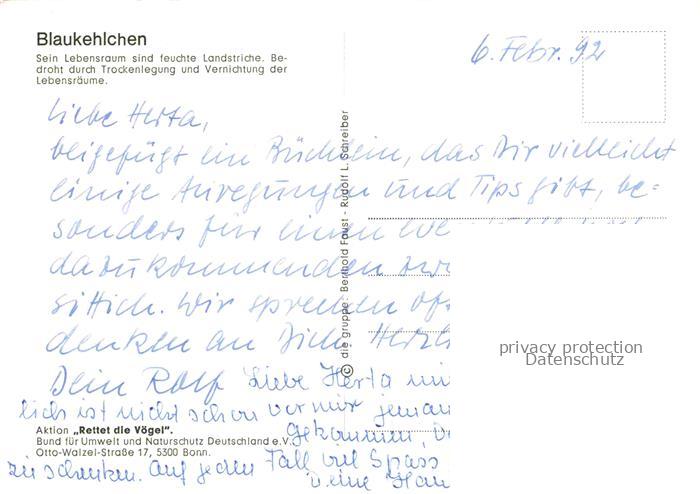 Blaukehlchen
Sein Lebensraum sind feuchte Landstriche. Be-
droht durch Trockenlegung und Vernichtung der
Lebensräume.
6. Febr. 92
Liebe Herta,
beigefügt ein Büchlein, das Dir vielleicht
einige Anregungen und Tips gibt, be=
sonders für einen
dazukommenden
sittich. Wir sprechen
denken an Dich Herzl
Dein Rolf Liebe Herta
lich ist nicht schon vor mir
gekommen,
zu schenken. Auf jeden Fall viel Spass
Deine
Aktion „Rettet die Vögel“.
Bund für Umwelt und Naturschutz Deutschland e.V.
Otto-Walzel-Straße 17, 5300 Bonn.
© die gruppe: Berthold Faust - Rudolf L. Schreiber
privacy protection
Datenschutz